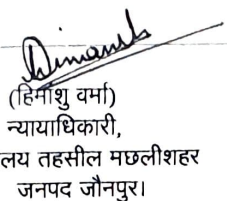 Himanshu
(हिमांशु वर्मा)
न्यायाधिकारी,
लय तहसील मछलीशहर
जनपद जौनपुर।